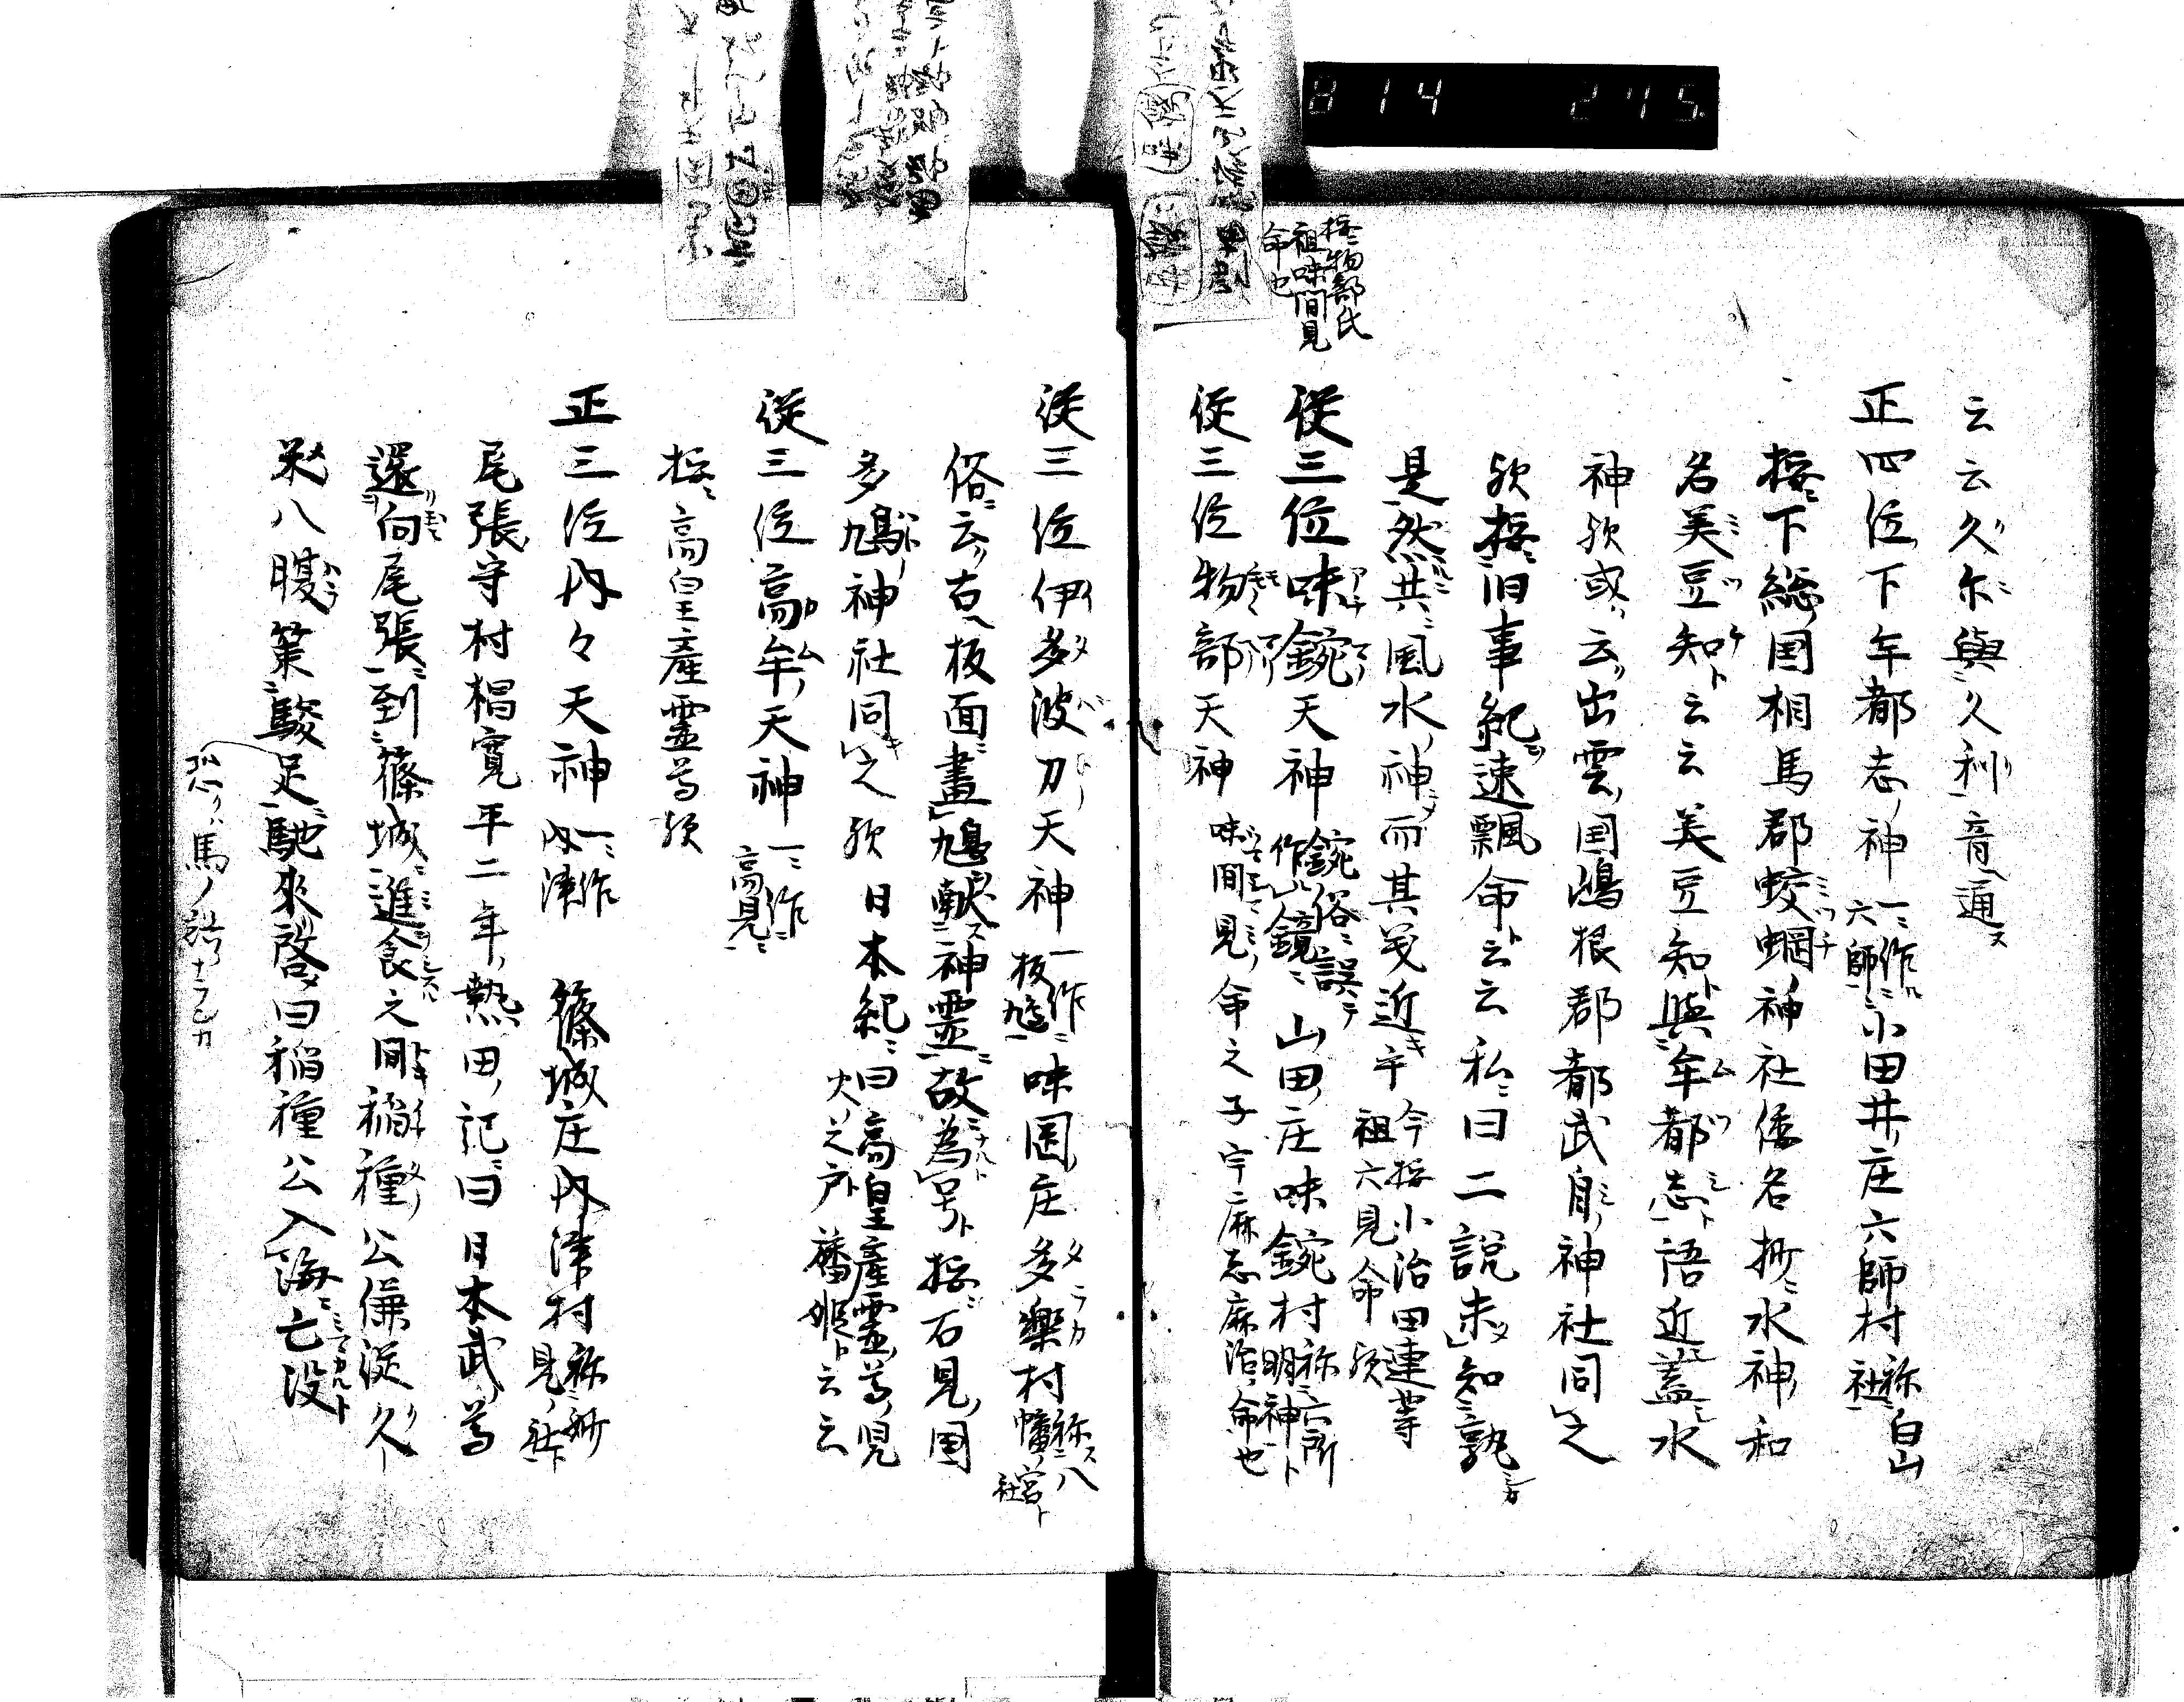 云云久尓與久利音通
正四位下牟都志神 一作六師 小田井庄六師村 称白山社
按下総国相馬郡蛟蝄神社倭名抄水神和
名美豆知云云美豆知與牟都志語近蓋水
神欤或云出雲国嶋根郡都武自神社同之
欤按旧事紀速飄命云云私曰二説未知孰
是然共風水神而其義近乎 今按小治田連等祖六見命欤
按物部氏祖味間見命也
従三位味鋺天神 鋺俗誤作鏡 山田庄味鋺村 称六所明神
従三位物部天神 味間見命之子宇麻志麻治命也
従三位伊多波刀天神 一作板鳩 味岡庄多楽村 称八幡宮社
俗云古板面畫鳩献神霊故為号按石見国
多鳩神社同之欤日本紀曰高皇産霊尊児火之戸幡姫云云
従三位高牟天神 一作高見
按高皇産霊尊欤
正三位内々天神 一作内津 篠城庄内津村 称妙見社
尾張守村椙寛平二年熱田記曰日本武尊
還向尾張到篠城進食之間稲種公傔従久
米八腹策駿足馳來啓曰稲種公入海亡没
恐ハ馬ノ
814 245